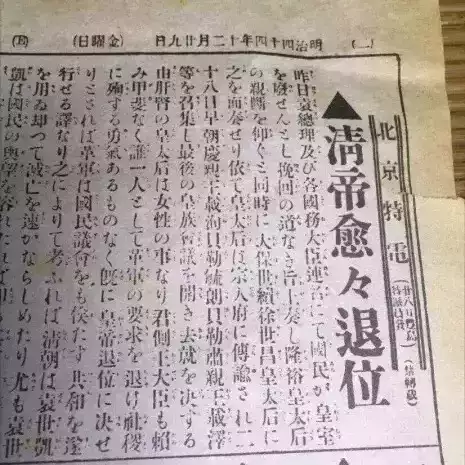 (二) 明治四十四年十二月廿九日 (金曜日)
北京特電
特派員發
(禁轉載)
▲清帝愈々退位
昨日袁總理及び各國務大臣連名にて國民が皇室
を廢せんとし挽回の道なき旨上奏し隆裕皇太后
の親裁を仰ぐと同時に太保世續徐世昌皇太后に
之を面奏せり依て皇太后は宗人府に傳諭され二
十八日早朝慶親王載洵貝勒毓朗貝勒肅親王載澤
等を召集し最後の皇族會議を開き去就を決する
由肝腎の皇太后は女性の事なり君側王大臣も賴
み甲斐なく誰一人として革軍の要求を退け社稷
に殉する勇氣あるものなく既に皇帝退位に決せ
りとされば革軍は國民議會をも俟たず共和を遂
行せる譯なり之によりて考ふれば清朝は袁世凱
を用ゐ却つて滅亡を速かならしめたり尤も袁世
凱は國民の輿望を容れたれば